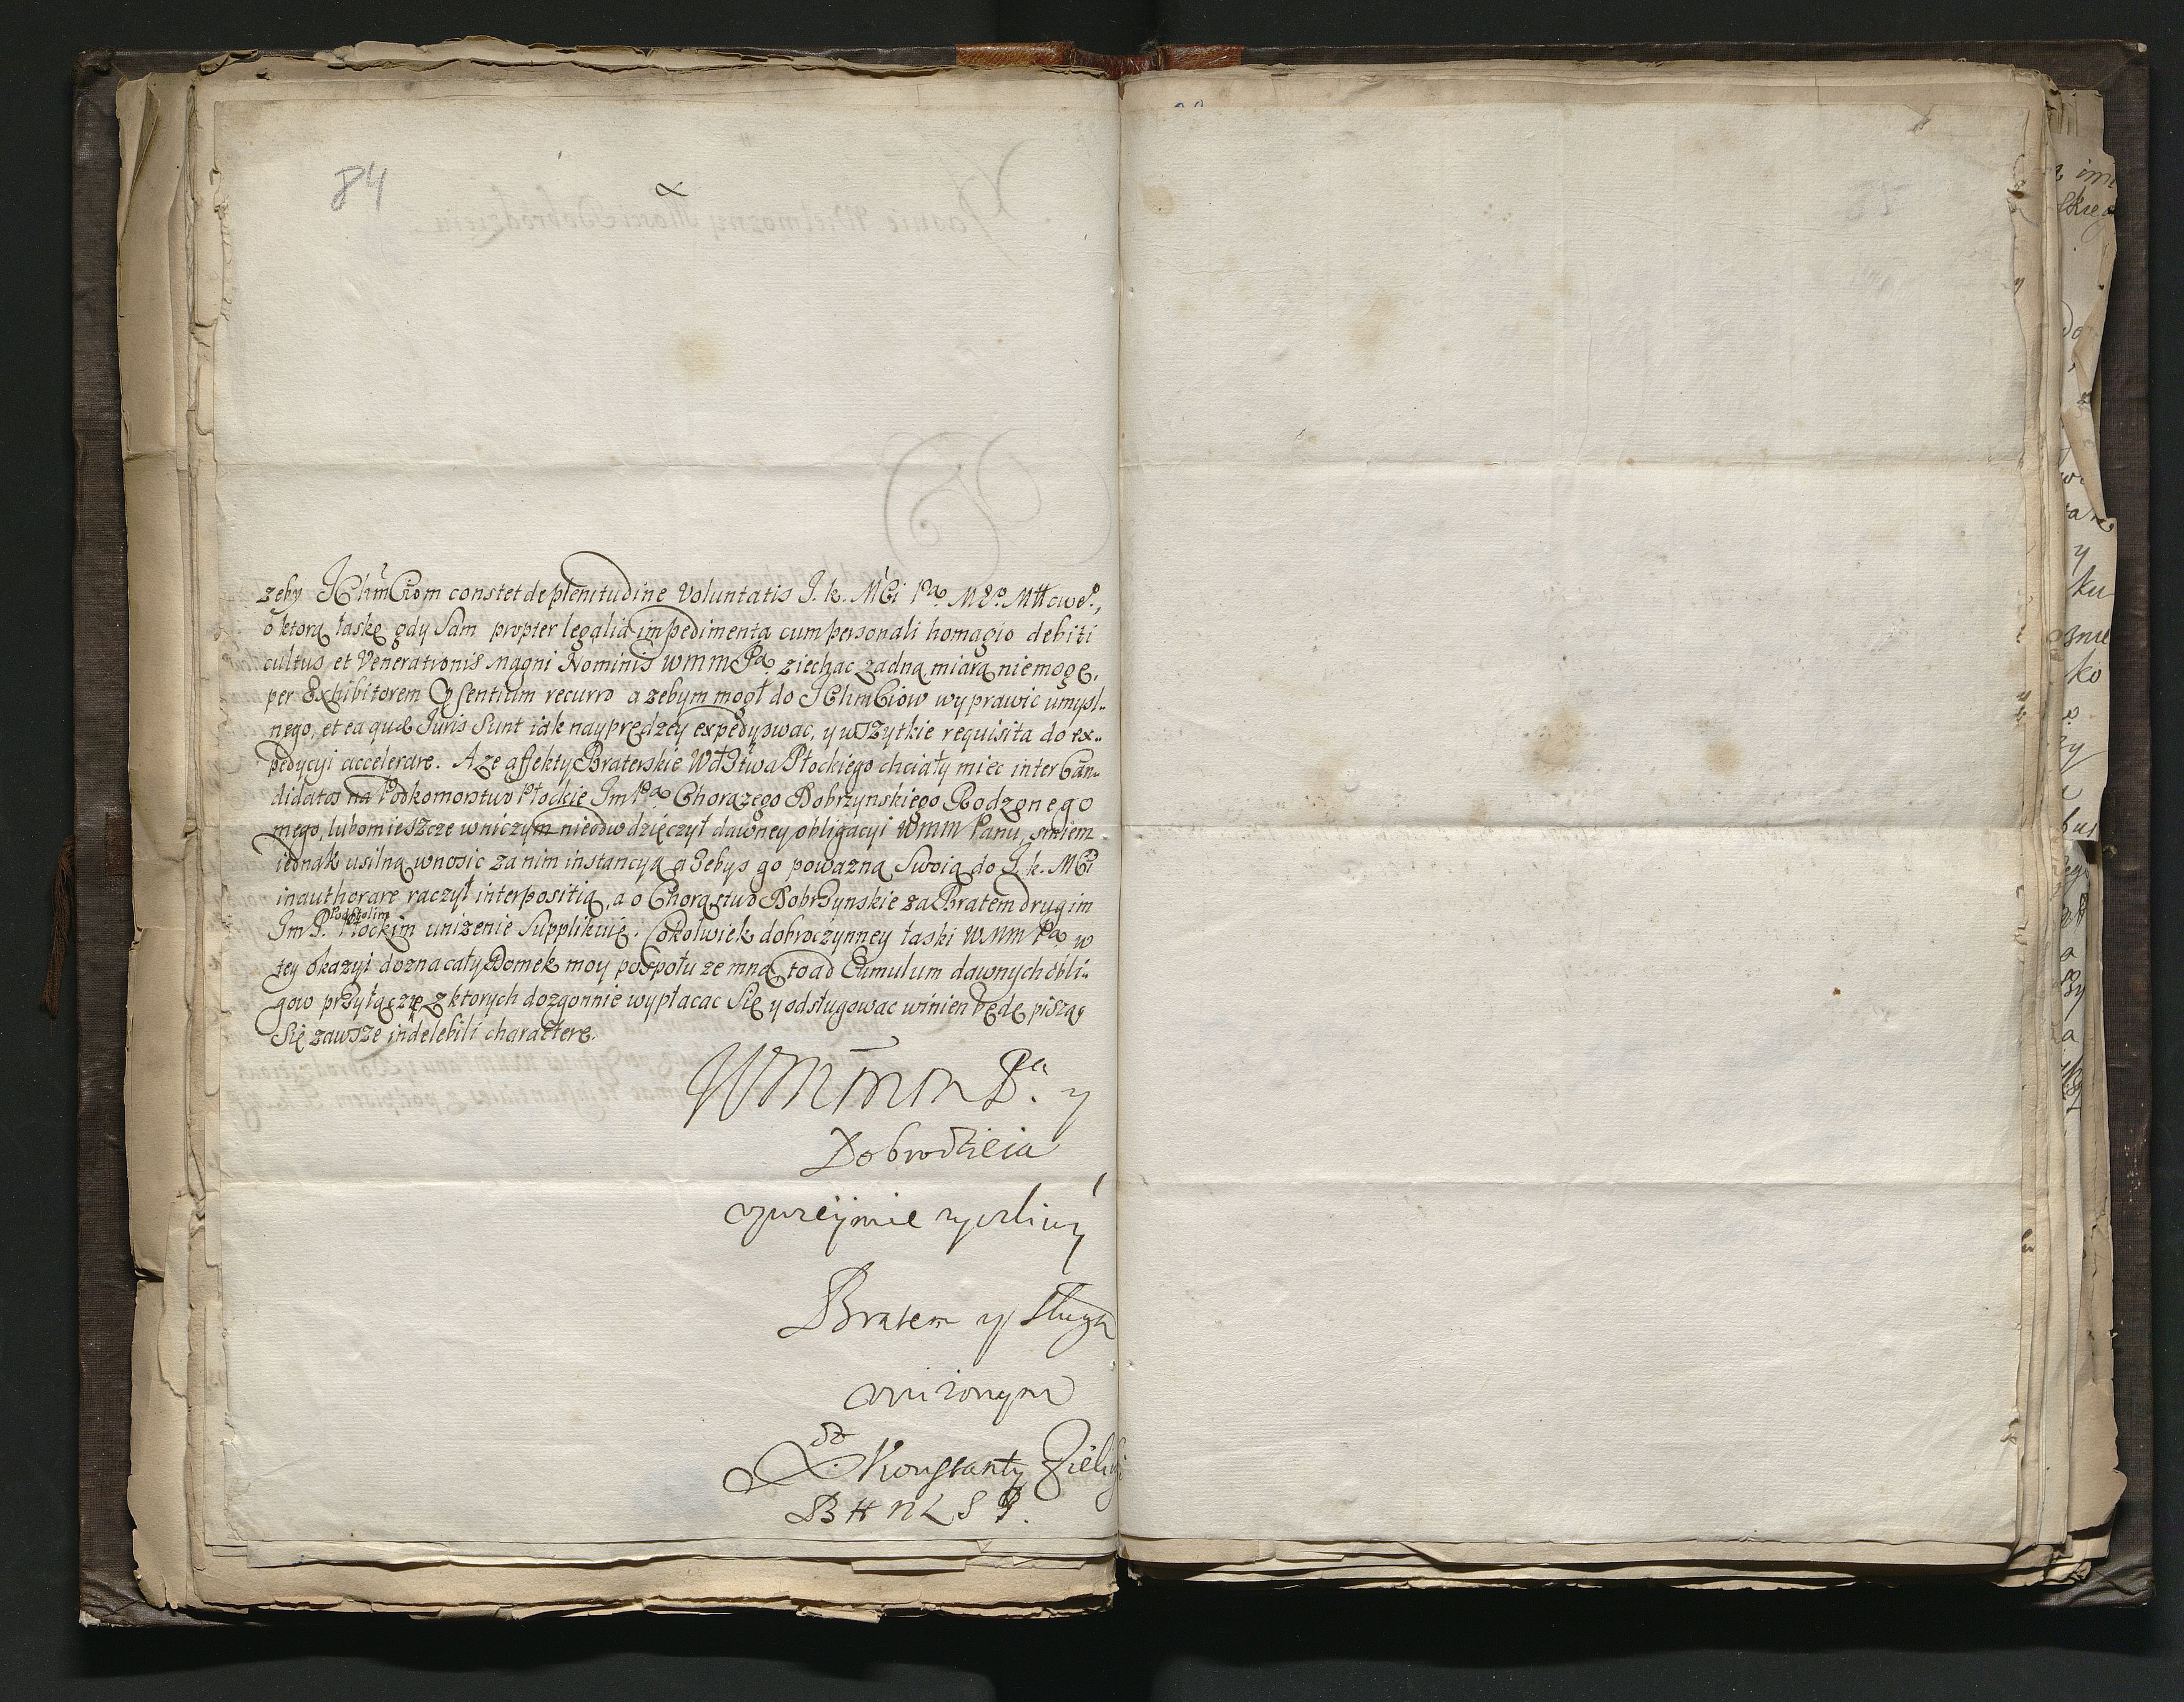 84
zeby IchmCiom constet de plenitudine Voluntatis J. k. MCi Pa Mgo MttCwego,
o ktorą łaskę gdy Sam propter legalia impedimenta cum personali homagio debiti
cultus, et Venerationis Magni Nominis WMM Pa ziechac zadną miarą niemogę,
per Exhibitorem Psentium recurro a zebym mogł do IchmCiow wyprawic umysl..
nego, et ea quæ Iuris Sunt iák nayprędzey expedyowac, y wszytkie requisita do ex..
pedycyi accelerare. A ze affekty Braterskie Wdztwa Płockiego chciały miec inter Can..
didatos na Podkomorstwo Płockie Jm Pa Chorązego Dobrzynskiego Rodzonego
mego, lubo mi eszcze wniczym nieodwdzięczył dawney obligacyi WMM Panu, smiem
iednak usilną wnosic za nim instancyą a zebys go powazną Swoią do J. k. MCi
inauthorare raczył interpositią, a o Chorąstwo Dobrzynskie za Bratem drugim
Podstolim
Jm P. Płockim unizenie Supplikuię. Cokolwiek dobroczynney łaski WMM Pa w
tey okazyi dozna cały Domek moy pospołu ze mną to ad Cumulum dawnych obli..
gow przyłączę z ktorych dozgonnie wypłacac Się y odsługowac winien będę pisząc
Się zawsze indelebili charactere.
WMMM Pa. y
Dobrodzieia
uprzeymie zyczliwy
Bratem y sługą
unizonym
X Konstanty Zieli
B H N L S P.